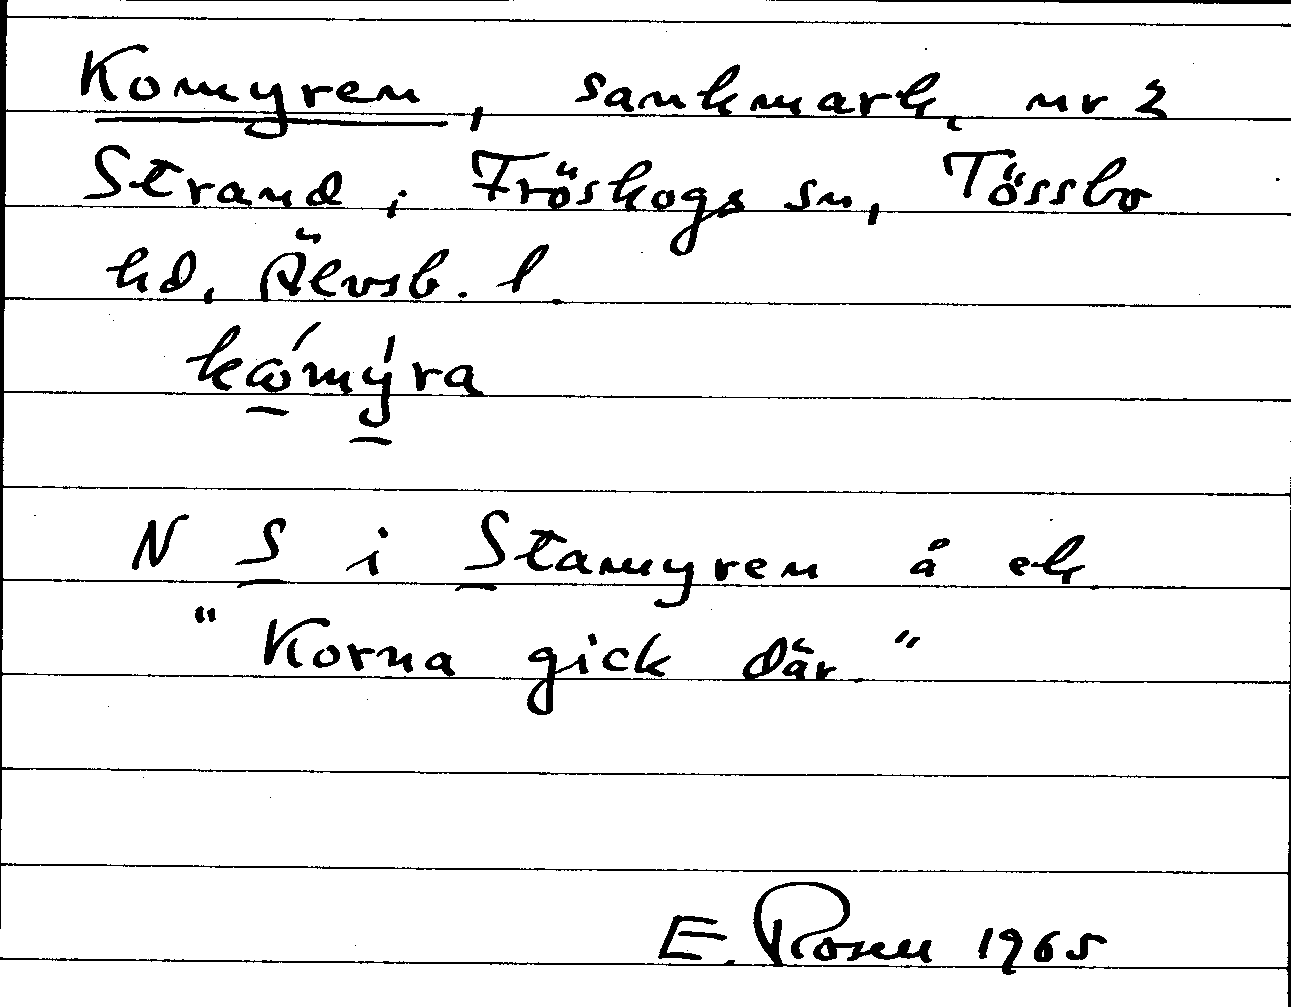 Komyren, sankmark, nr 2
Strand, Fröskogs sn, Tössbo
hd, Älvsb. l.
kómýra
N S i Stamyren å ek
"Korna gick där."
E. Rosen 1965